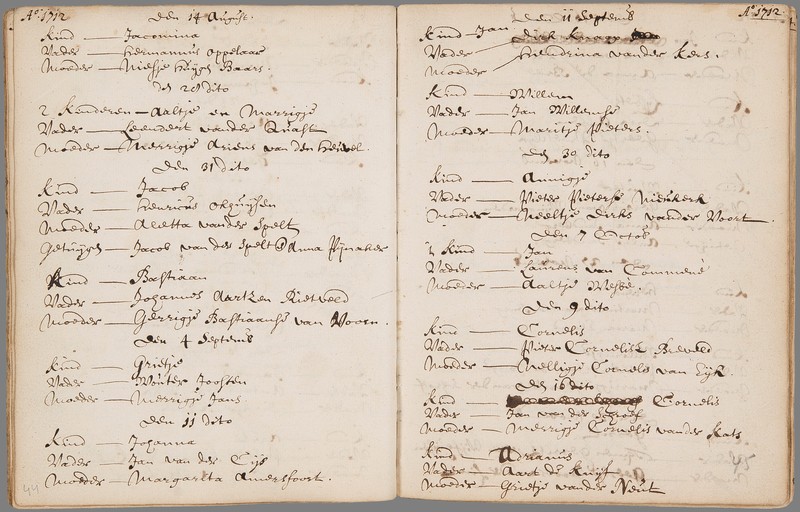 Ao. 1712
Den 14 August.
Kind — Jacomina
Vader — Hermannus Appelaar
Moeder — Niesje Huijgh Baars.
den 28 dito
2 Kinderen — Aaltje en Marrigje
Vader — Leendert vander Quast
Moeder — Merrigje Ariens van den Heuvel.
Den 31 dito
Kind — Jacob
Vader — Henricus
Moeder — Aletta vander Spelt
Getuijgen — Jacob van der Spelt & Anna Pijnaker
Kind — Bastiaan
Vader — Johannes Aartzen Rietveld
Moeder — Gerrigje Bastiaanse van Voorn.
Den 4 Septemb
Kind — Grietje
Vader — Wouter Joosten
Moeder — Merrigje Jans
Den 11 dito
Kind — Johanna
Vader — Jan van der Eijs
Moeder — Margarita Amersfoort.
44
Ao. 1712.
Den 11 Septemb
Kind Jan
Vader — Dirk
Moeder — Hendrina vander Kers.
Kind — Willem
Vader — Jan Willemse
Moeder — Maritje Pieters.
Den 30 dito
Kind — Annigje
Vader — Pieter Pieterse Niekerk
Moeder — Neeltje Dirks vander Voort.
Den 7 Octob
't Kind — Jan
Vader — Laurens van Commene
Moeder — Aaltje
Den 9 dito
Kind — Cornelis
Vader — Pieter Cornelisz
Moeder — Melligje Cornelis van Eijk
Den 16 dito
Kind — Cornelis
Vader — Jan van der Graaf
Moeder — Merrigje Cornelis vander Kats
Kind — Adrianus
Vader — Aart de Kuijf
Moeder — Grietje vander Neut
45